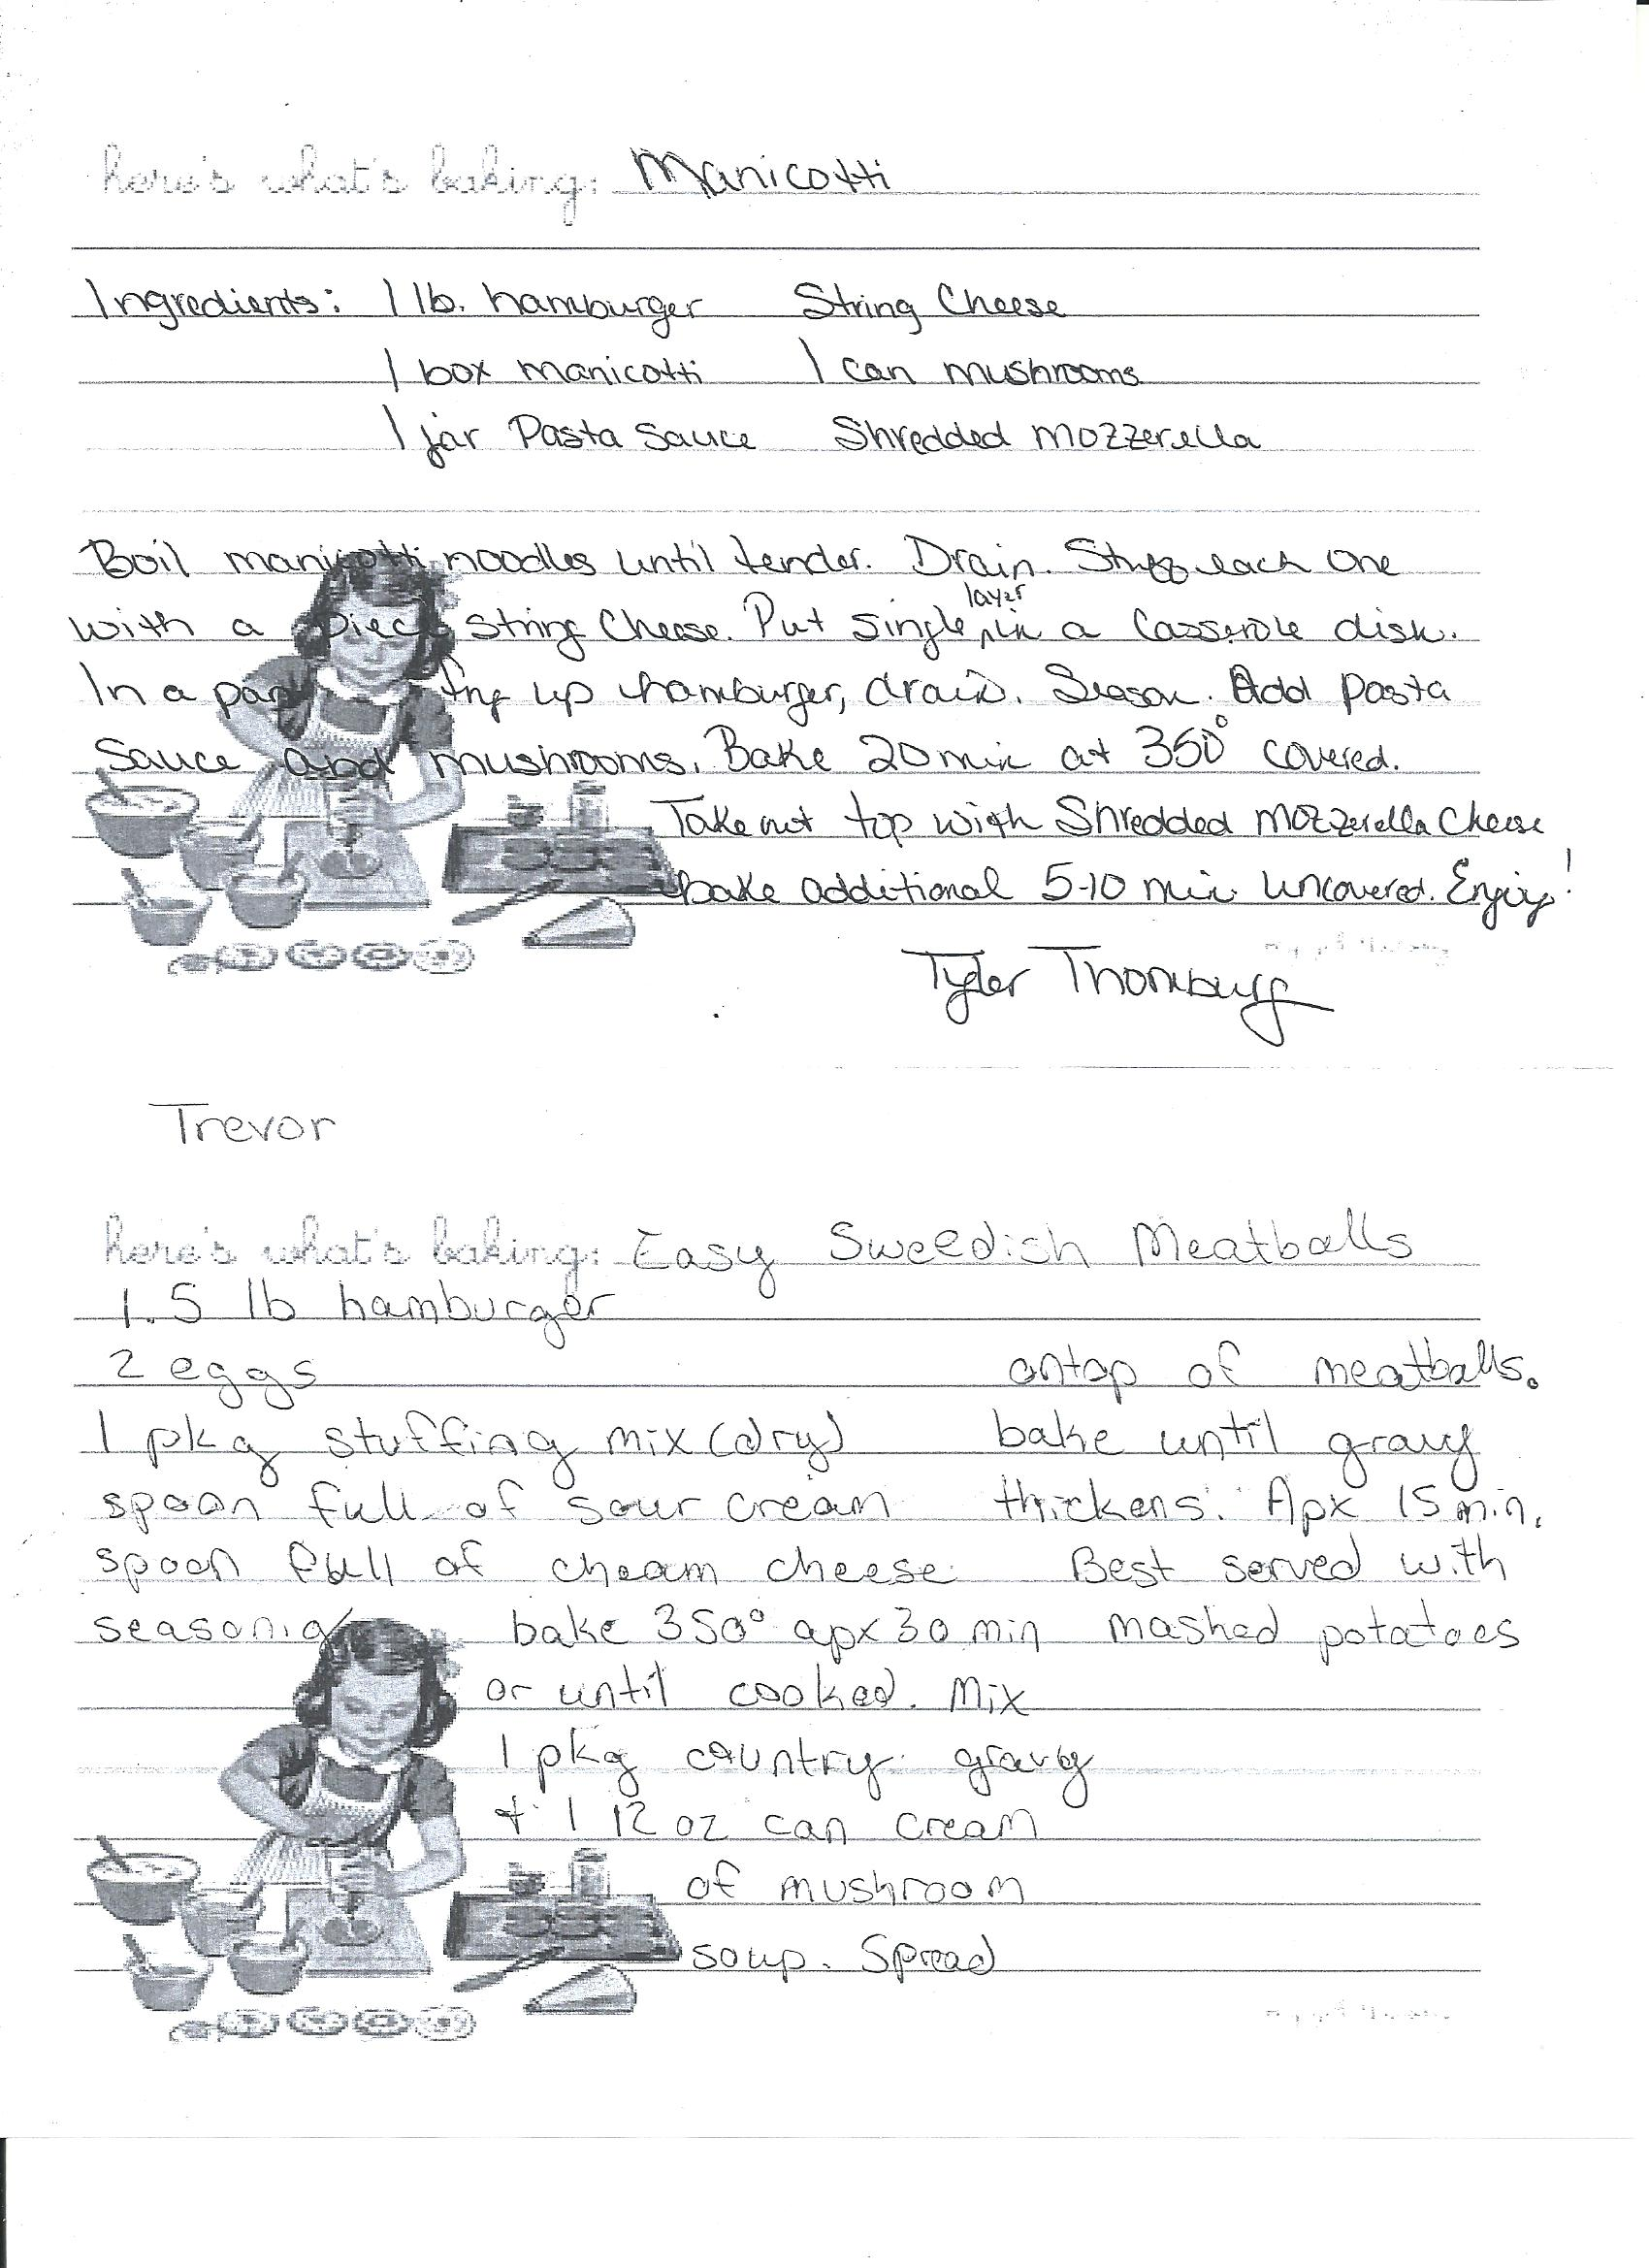 here's what's baking: Manicotti
Ingredients: 1 lb. hamburger String Cheese
1 box manicotti 1 can mushrooms
1 jar Pasta Sauce Shredded mozzerella
Boil manicotti noodles until tender. Drain. Stuff each one
with a piece string Cheese. Put single layer in a Casserole dish.
In a pan fry up hamburger, drain. Season. Add pasta
sauce and mushrooms. Bake 20 min at 350° covered.
Take out top with Shredded mozzerella Cheese
bake additional 5-10 min uncovered. Enjoy!
Tyler Thornburg
Trevor
here's what's baking: Easy Sweedish Meatballs
1.5 lb hamburger
2 eggs
1 pkg stuffing mix (dry)
spoon full of sour cream
spoon full of cheam cheese
seasonig
bake 350° apx 30 min
or until cooked. Mix
1 pkg country gravy
+ 1 12 oz can cream
of mushroom
soup. Spread
ontop of meatballs.
bake until gravy
thickens. Apx 15 min.
Best served with
mashed potatoes